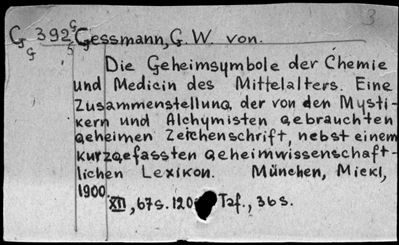 G 392 Gessmann, G. W. von.
Die Geheimsymbole der Chemie
und Medicin des Mittelalters. Eine
Zusammenstellung der von den Mysti-
kern und Alchymisten gebrauchten
geheimen Zeichenschrift, nebst einem
kurzgefassten geheimwissenschaft-
lichen Lexikon. München, Mickl,
1900
XII, 67s. 120 Taf., 36s.